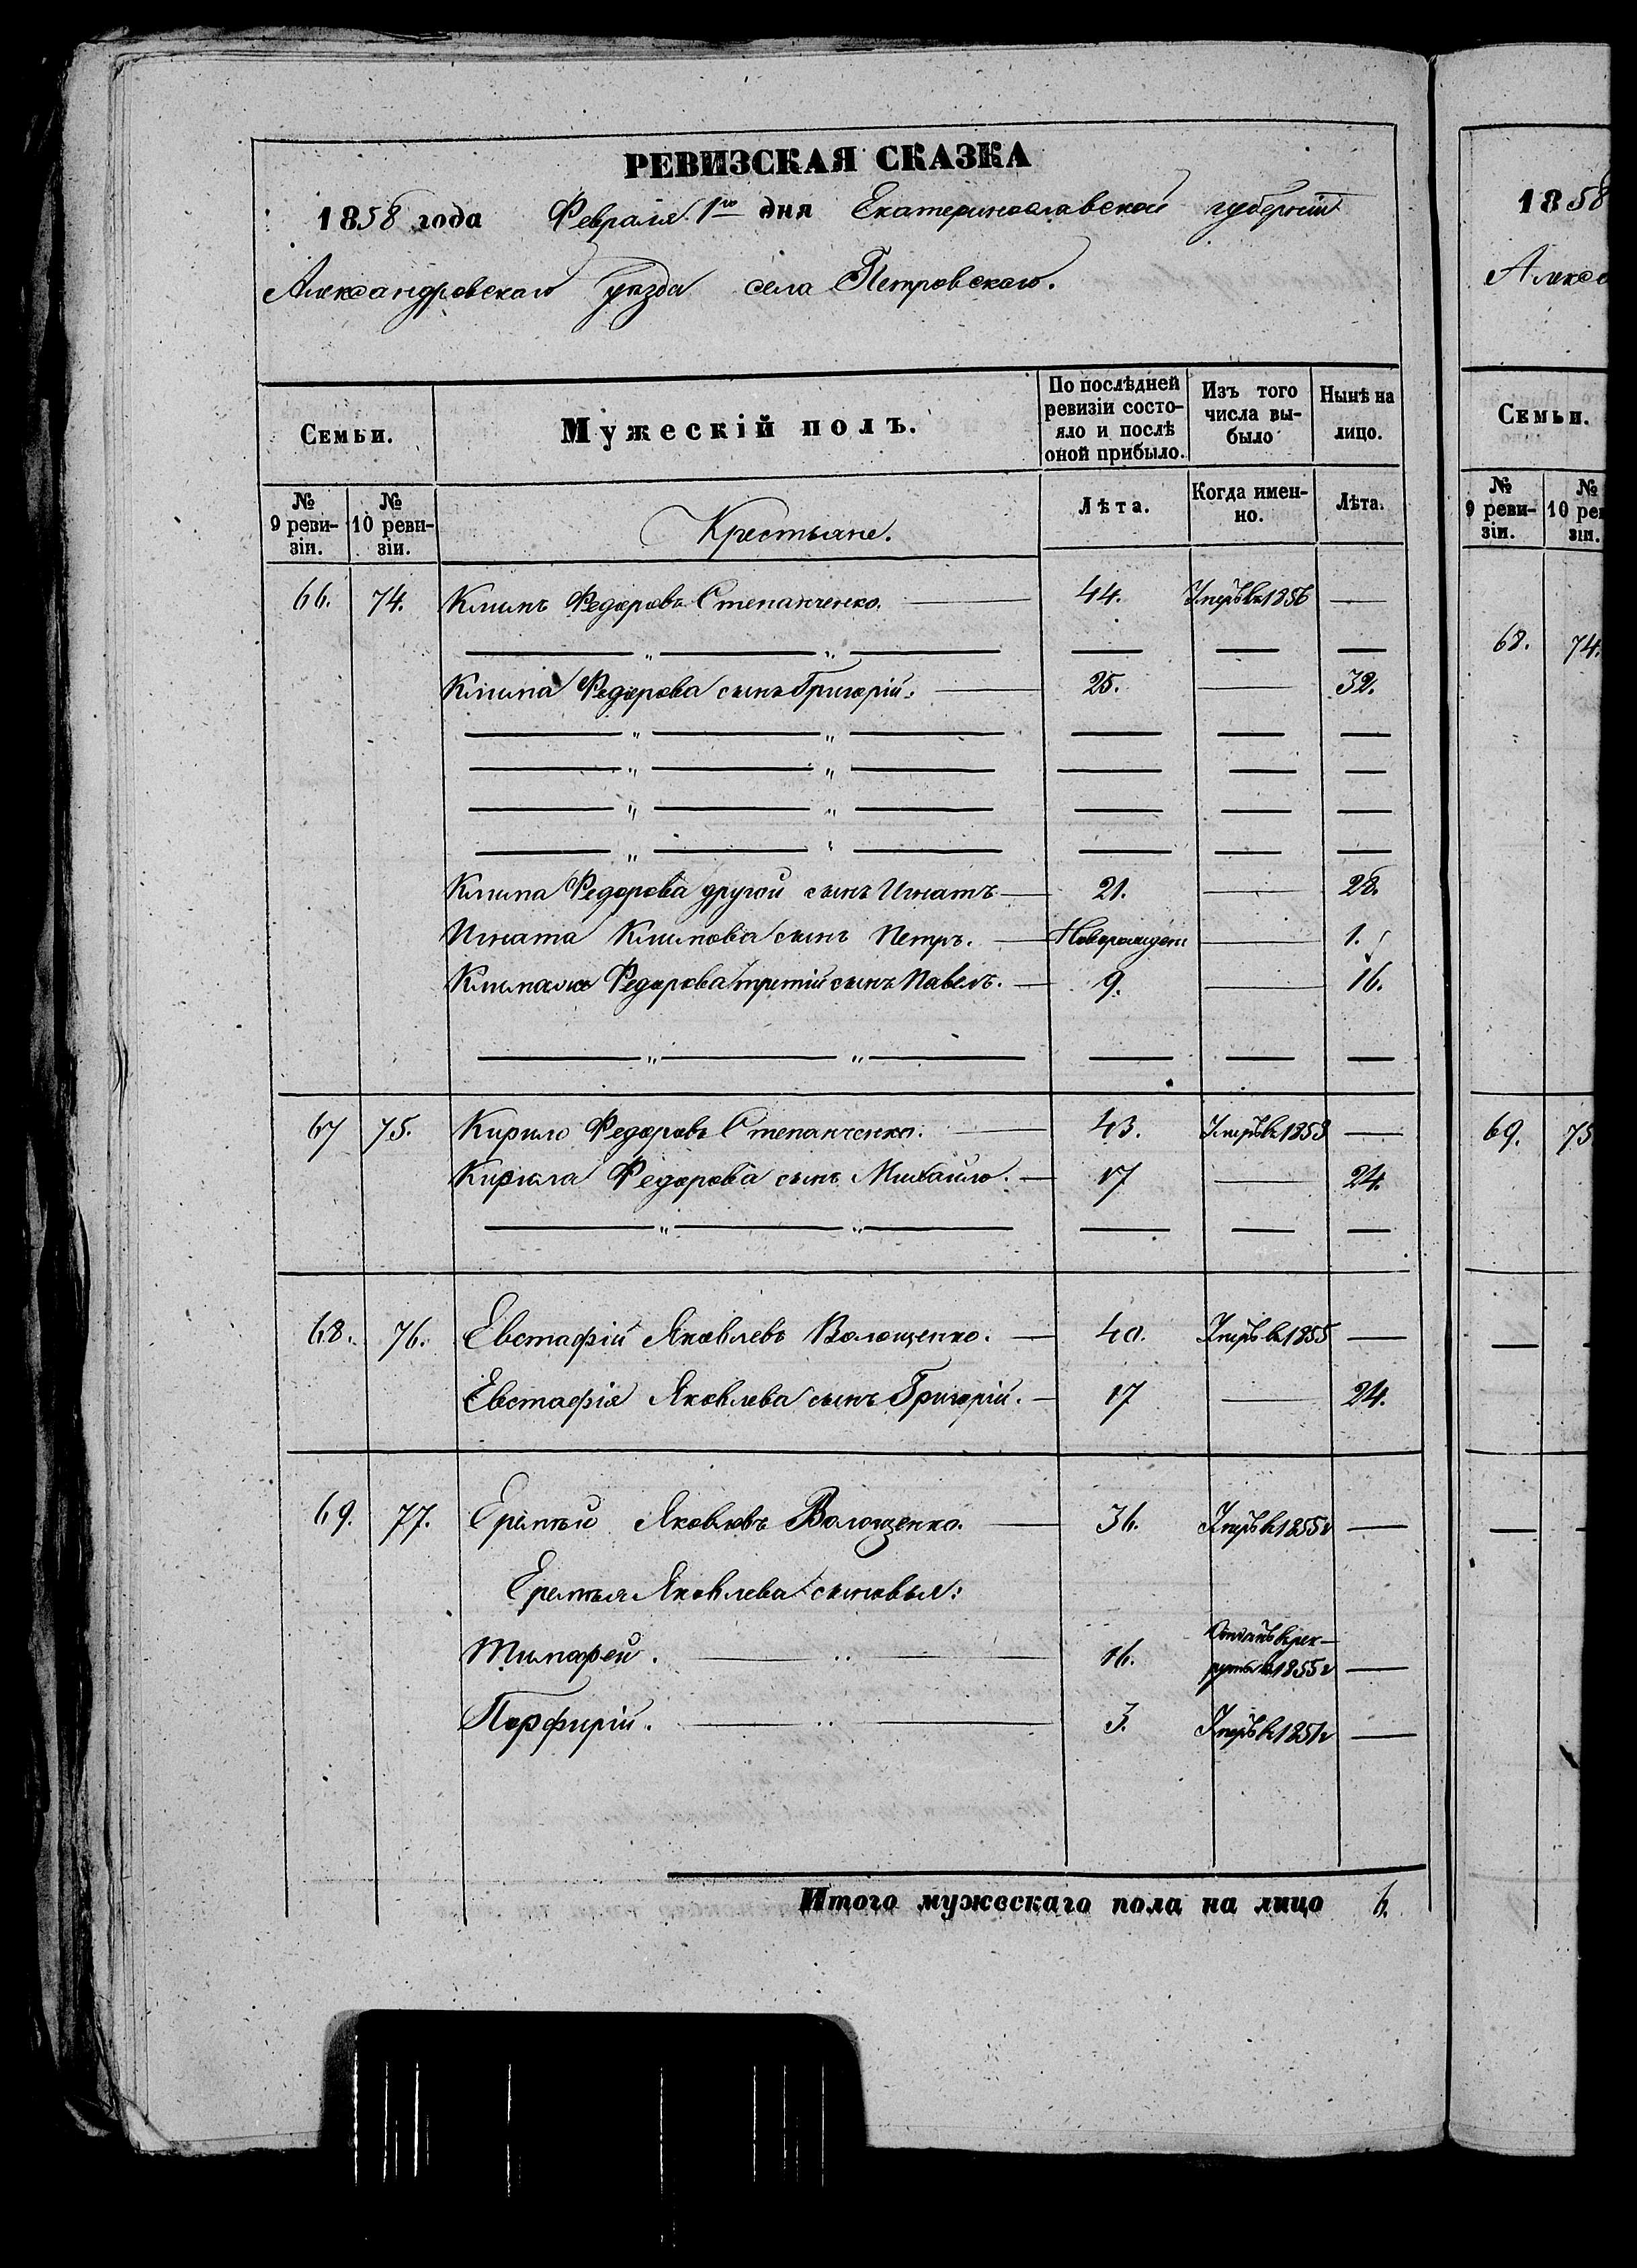 РЕВИЗСКАЯ СКАЗКА
1858 года Февраля 1го дня Екатеринославской губерніи
Александровскаго уезда села Петровскаго.
Семьи.
Мужескій полъ.
По послѣдней ревизіи состояло и послѣ оной прибыло.
Изъ того числа выбыло
Нынѣ на лицо.
№ 9 ревизіи.
№ 10 ревизіи.
Крестьяне.
Лѣта.
Когда именно.
Лѣта.
66. 74. Климъ Федоровъ Степанченко. 44. Умеръ въ 1856 —
Клима Федорова сынъ Григорій. 25. — 32.
Клима Федорова другой сынъ Игнатъ 21. — 28.
Игната Климова сынъ Петръ. Новорожден — 1.
Клима Федорова третій сынъ Павелъ. 9. — 16.
67 75. Кирило Федоровъ Степанченко. 43. Умеръ въ 1853 —
Кирила Федорова сынъ Михайло. 17 — 24.
68. 76. Евстафій Яковлевъ Волощенко. 40. Умеръ въ 1855 —
Евстафія Яковлева сынъ Григорій. 17 — 24.
69. 77. Еремѣй Яковлевъ Волощенко. 36. Умеръ въ 1855г —
Еремѣя Яковлева сыновья:
Тимофей. 16. Отданъ въ рекруты въ 1855г —
Порфирій. 3. Умеръ въ 1851г —
Итого мужескаго пола на лицо 6.
1858
Алексо
Семьи.
№ 9 ревизіи.
№ 10 рев зіи.
68. 74.
69. 75